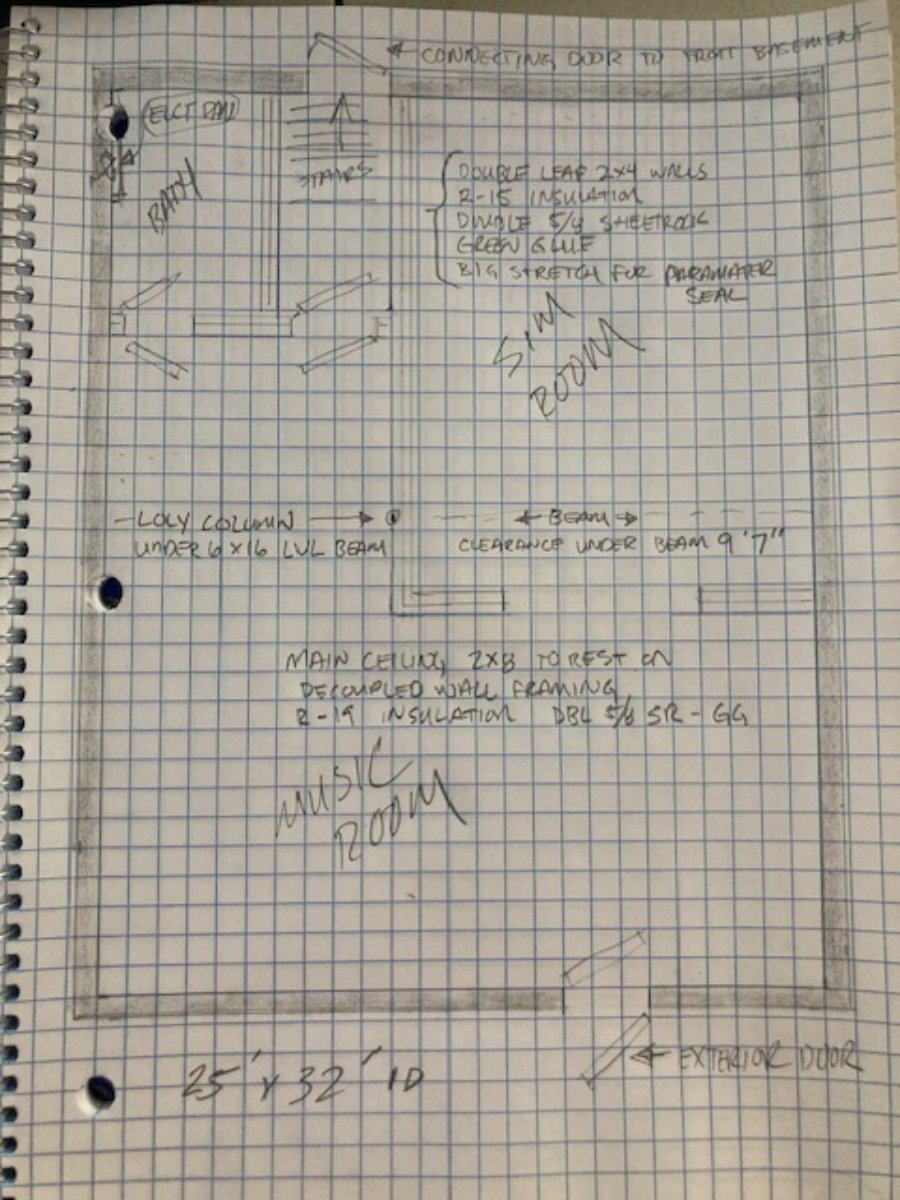 ← CONNECTING DOOR TO FRONT BASEMENT
ELCT PAN
BATH
STAIRS
DOUBLE LEAF 2x4 WALLS
R-15 INSULATION
DOUBLE 5/8 SHEETROCK
GREEN GLUE
BIG STRETCH FOR PARAMATER
SEAL
SIM
ROOM
LOLY COLUMN →
UNDER 6x16 LVL BEAM
← BEAM →
CLEARANCE UNDER BEAM 9'7"
MAIN CEILING 2x8 TO REST ON
DECOUPLED WALL FRAMING
R-19 INSULATION DBL 5/8 SR - GG
MUSIC
ROOM
← EXTERIOR DOOR
25' x 32' ID